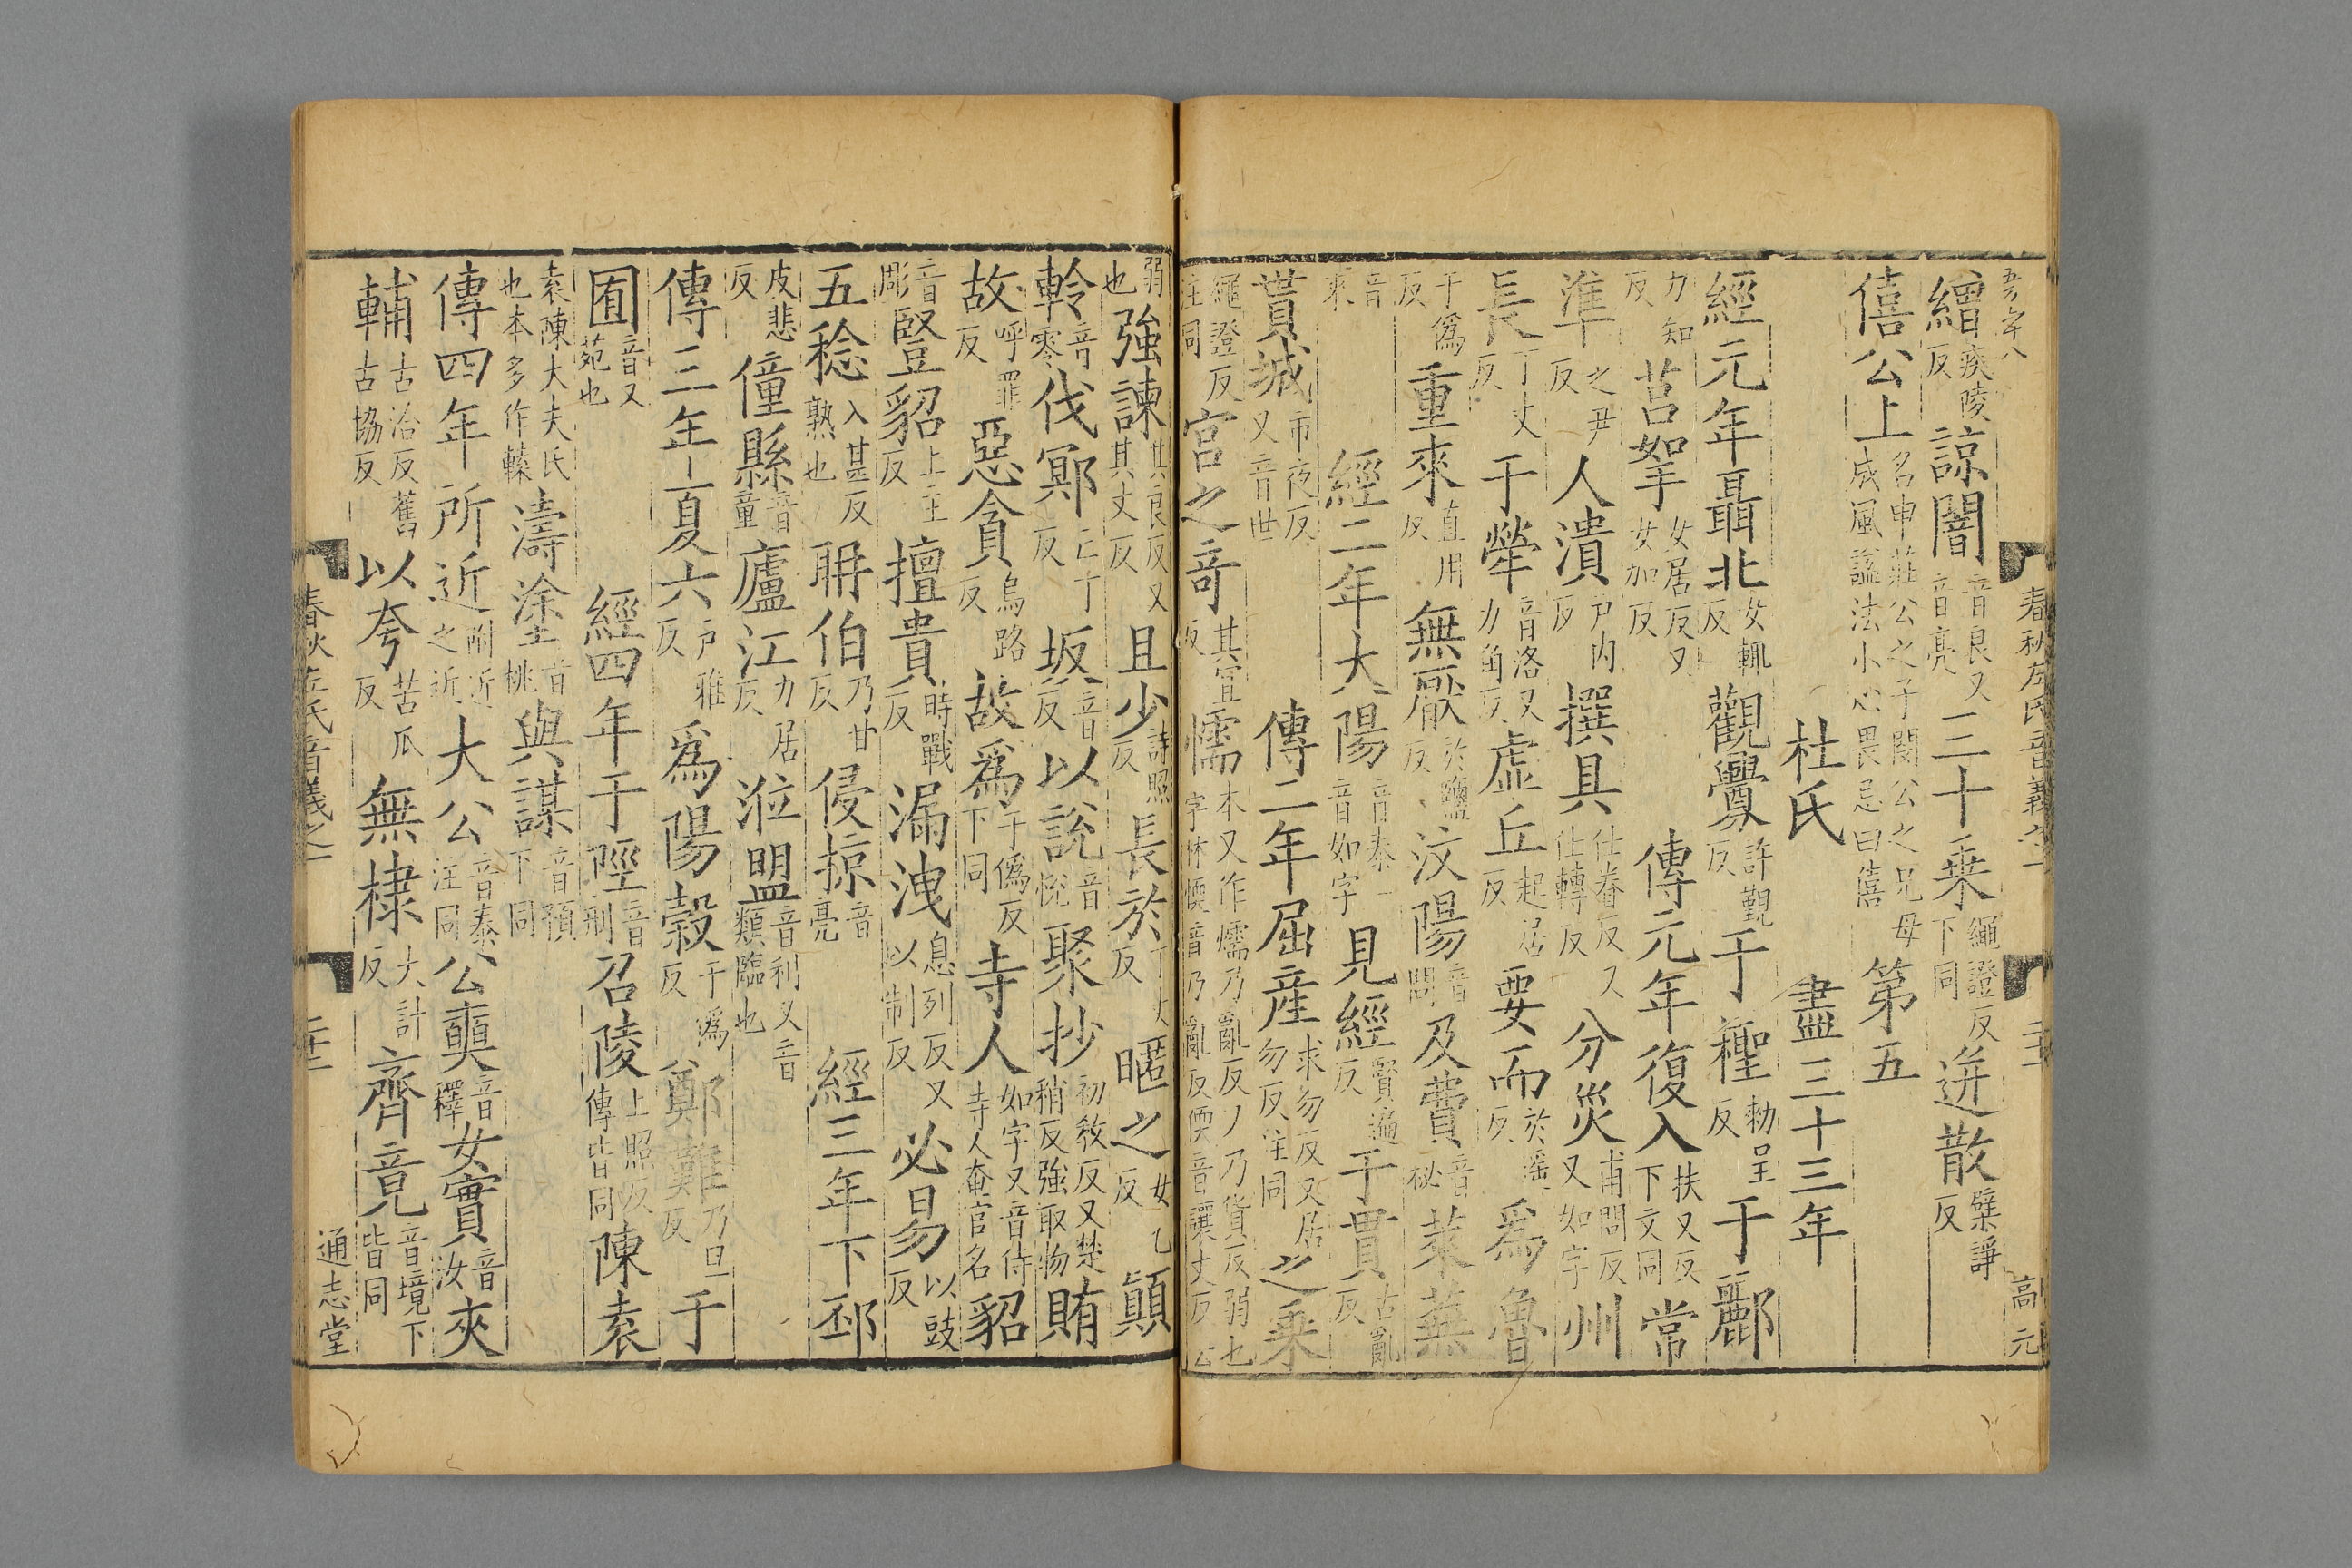 春秋左氏音義之一
高元
繒疾陵反諒闇音良又音亮三十乗繩證反下同迸散檗諍反
僖公上名申莊公之子閔公之兄母成風謚法小心畏忌曰僖第五
杜氏 盡三十三年
經元年聶北女輒反觀釁許覲反于檉勑呈反于酈
力知反莒挐女居反又女加反 傳元年復入扶又反下文同常
準之尹反人潰户内反撰具仕眷反又仕轉反分災甫問反又如字州
長丁丈反于犖音洛又力角反虚丘起居反要而於遥反爲魯
于僞反重來直用反無厭於鹽反汶陽音問及費音祕萊蕪
音來 經二年大陽音泰一音如字見經賢遍反于貫古亂反
貰城市夜反又音世 傳二年屈產求勿反又居勿反注同之乗
繩證反注同宫之奇其宜反懦本又作愞乃亂反又乃貨反弱也字林愞音乃亂反偄音讓犬反云
弱也強諫其良反又其丈反且少詩照反長於丁丈反暱之女乙反顛
軨音零伐鄍亡丁反坂音反以說音悅聚抄初敎反又楚稍反強取物賄
故呼罪反惡貪烏路反故爲于僞反下同寺人如字又音侍寺人奄官名貂
音彫豎貂上主反擅貴時戰反漏洩息列反又以制反必易以豉反
五稔入甚反熟也聃伯乃甘反侵掠音亮 經三年下邳
皮悲反僮縣音童廬江力居反涖盟音利又音類臨也
傳三年夏六户雅反爲陽穀于僞反鄭難乃旦反于
囿音又苑也 經四年于陘音刑召陵上照反傳皆同陳袁
袁陳大夫氏也本多作轅濤塗音桃與謀音預下同
傳四年所近附近之近大公音泰注同公奭音釋女實音汝夾
輔古洽反舊古協反以夸苦瓜反無棣大計反齊竟音境下皆同
春秋左氏音義之一
通志堂